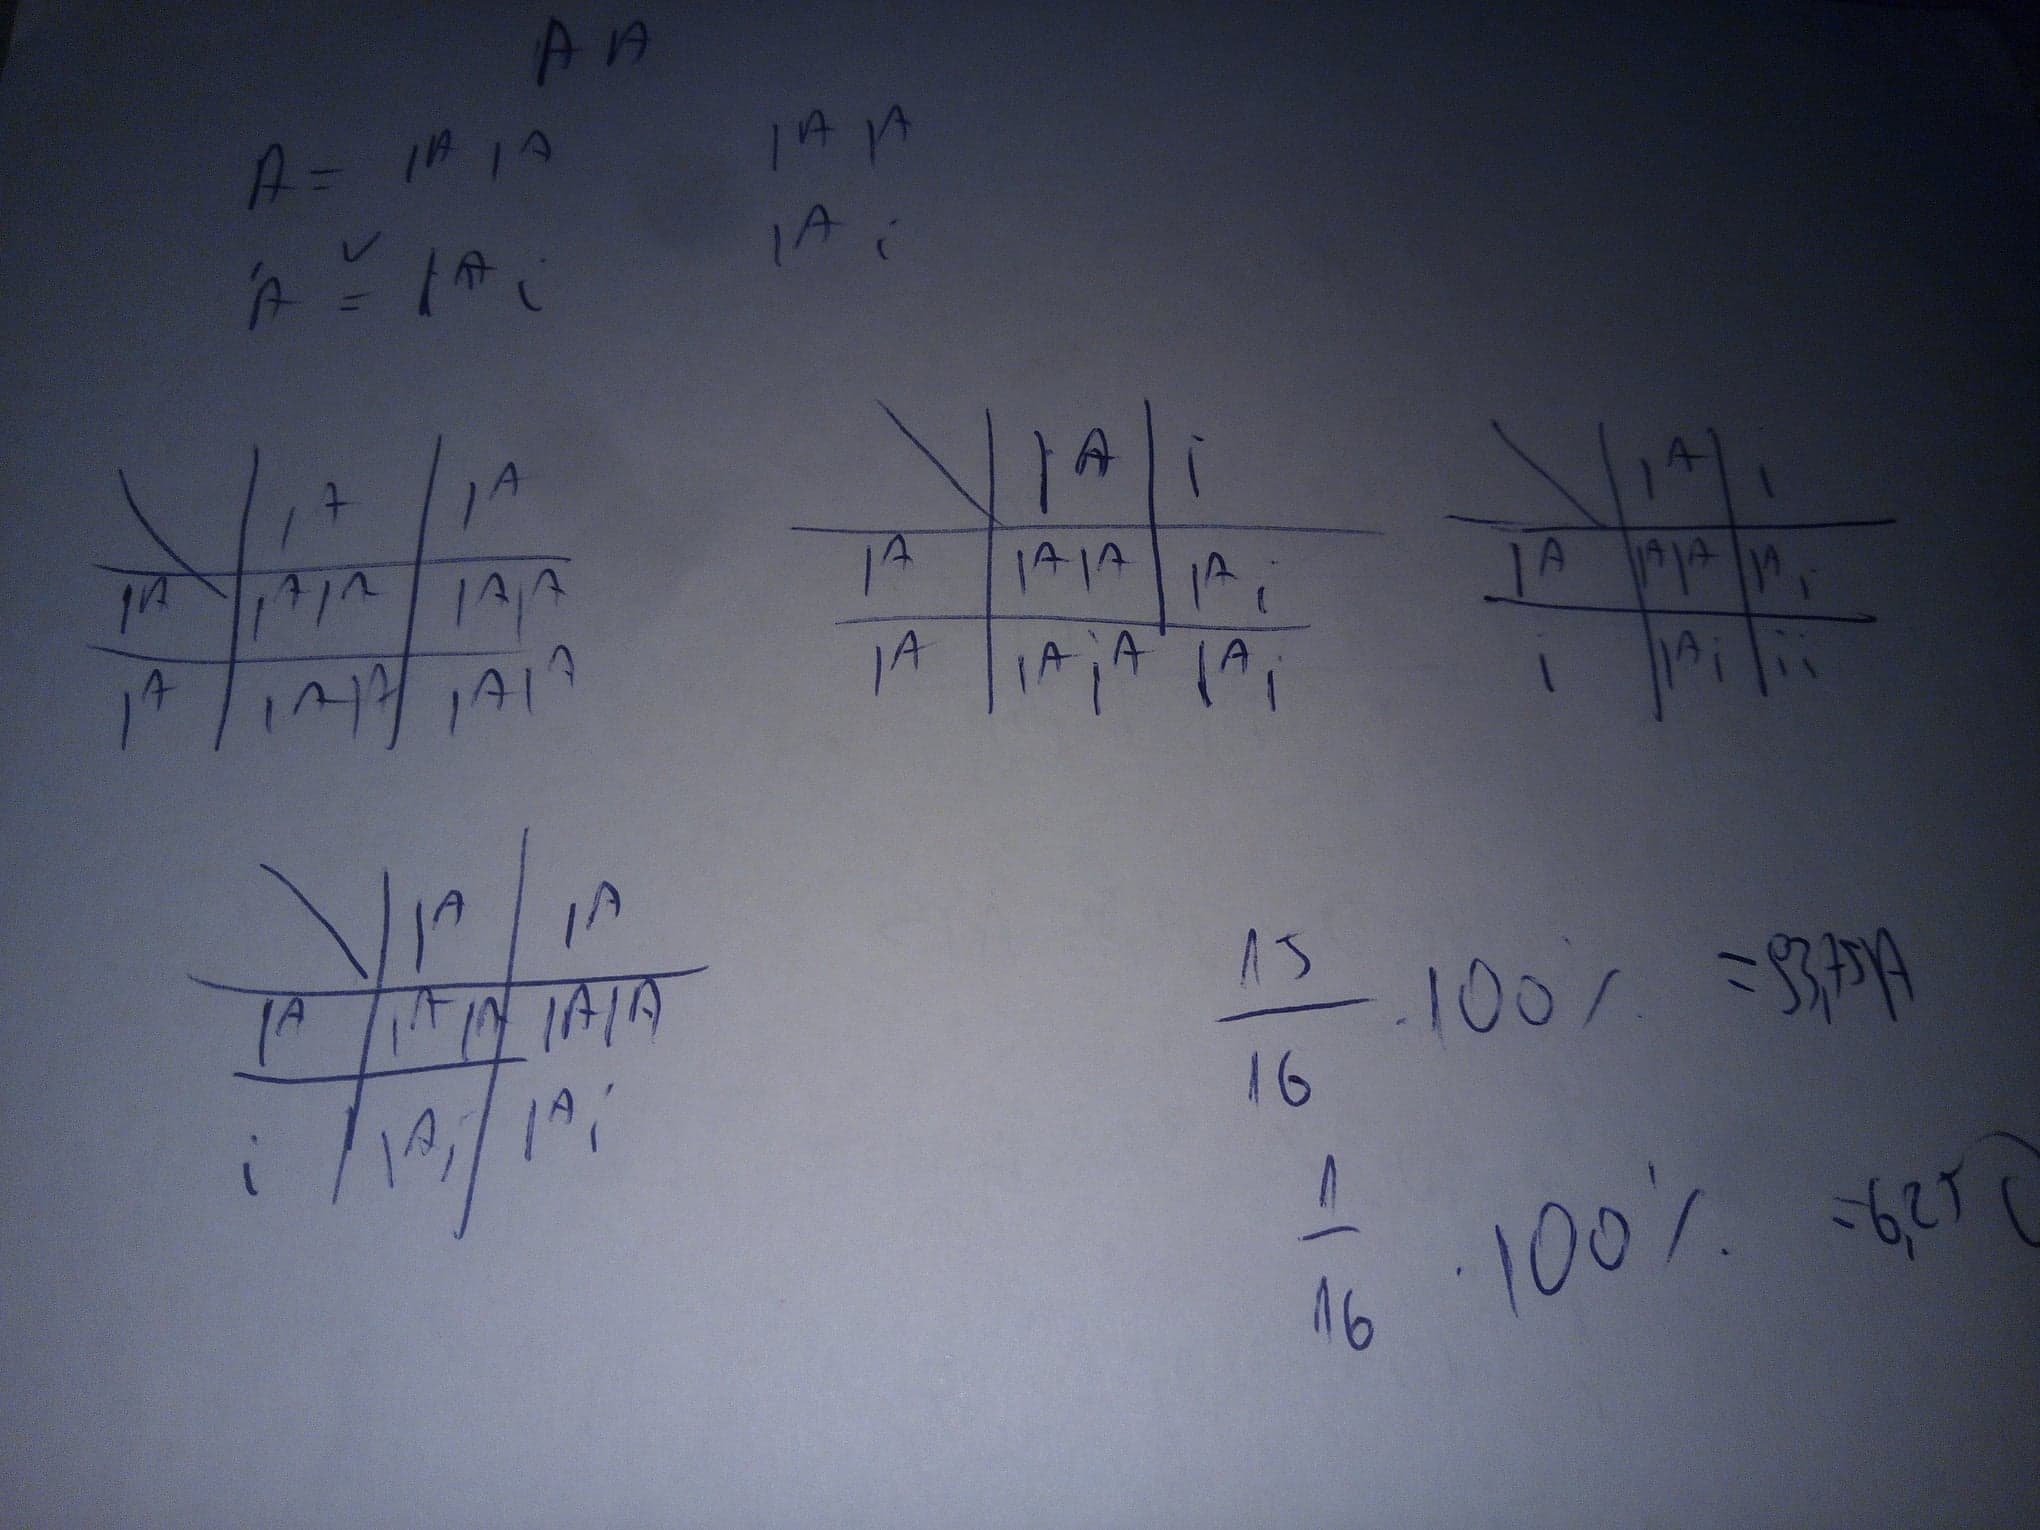 A A
A = IA IA IA IA
A = IA i IA i
IA IA
IA IAIA IAIA
IA IAIA IAIA
IA i
IA IAIA IAi
IA IAiA IAi
IA i
IA IAIA IAi
i IAi ii
IA IA
IA IAIA IAIA
i IAi IAi
15/16 · 100% = 93,75 A
1/16 · 100% = 6,25